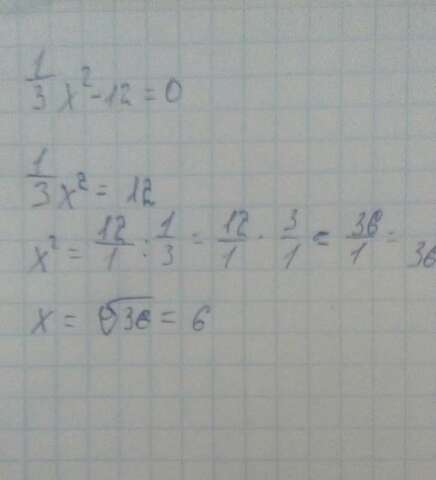 1/3 x² - 12 = 0
1/3 x² = 12
x² = 12/1 : 1/3 = 12/1 · 3/1 = 36/1 = 36
x = √36 = 6